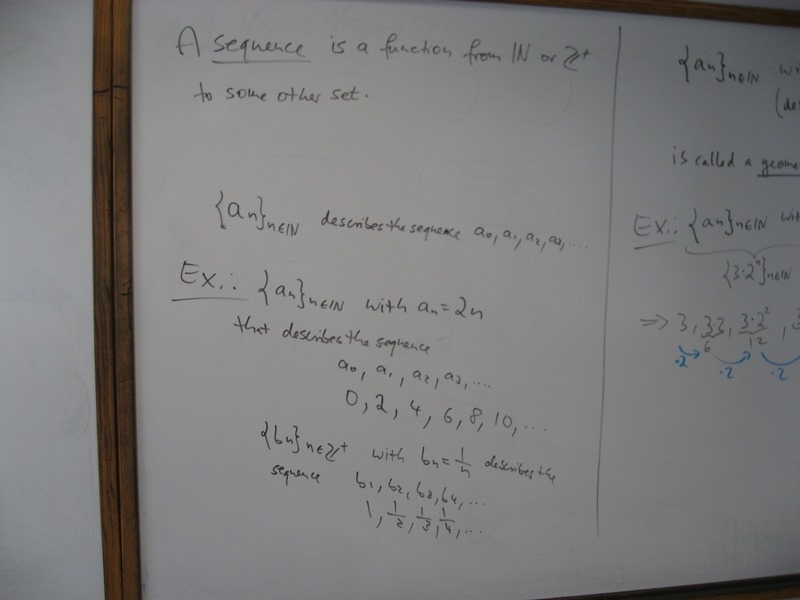 A sequence is a function from ℕ or ℤ⁺
to some other set.
{aₙ}ₙ∈ℕ describes the sequence a₀, a₁, a₂, a₃, ....
Ex.: {aₙ}ₙ∈ℕ with aₙ = 2n
that describes the sequence
a₀, a₁, a₂, a₃, ....
0, 2, 4, 6, 8, 10, ...
{bₙ}ₙ∈ℤ⁺ with bₙ = 1/n describes the
sequence b₁, b₂, b₃, b₄, ...
1, 1/2, 1/3, 1/4, ...
{aₙ}ₙ∈ℕ
is called a
Ex.: {aₙ}ₙ∈ℕ
{3·2ⁿ}ₙ∈ℕ
=> 3, 3·2, 3·2²,
6 12
·2 ·2 ·2